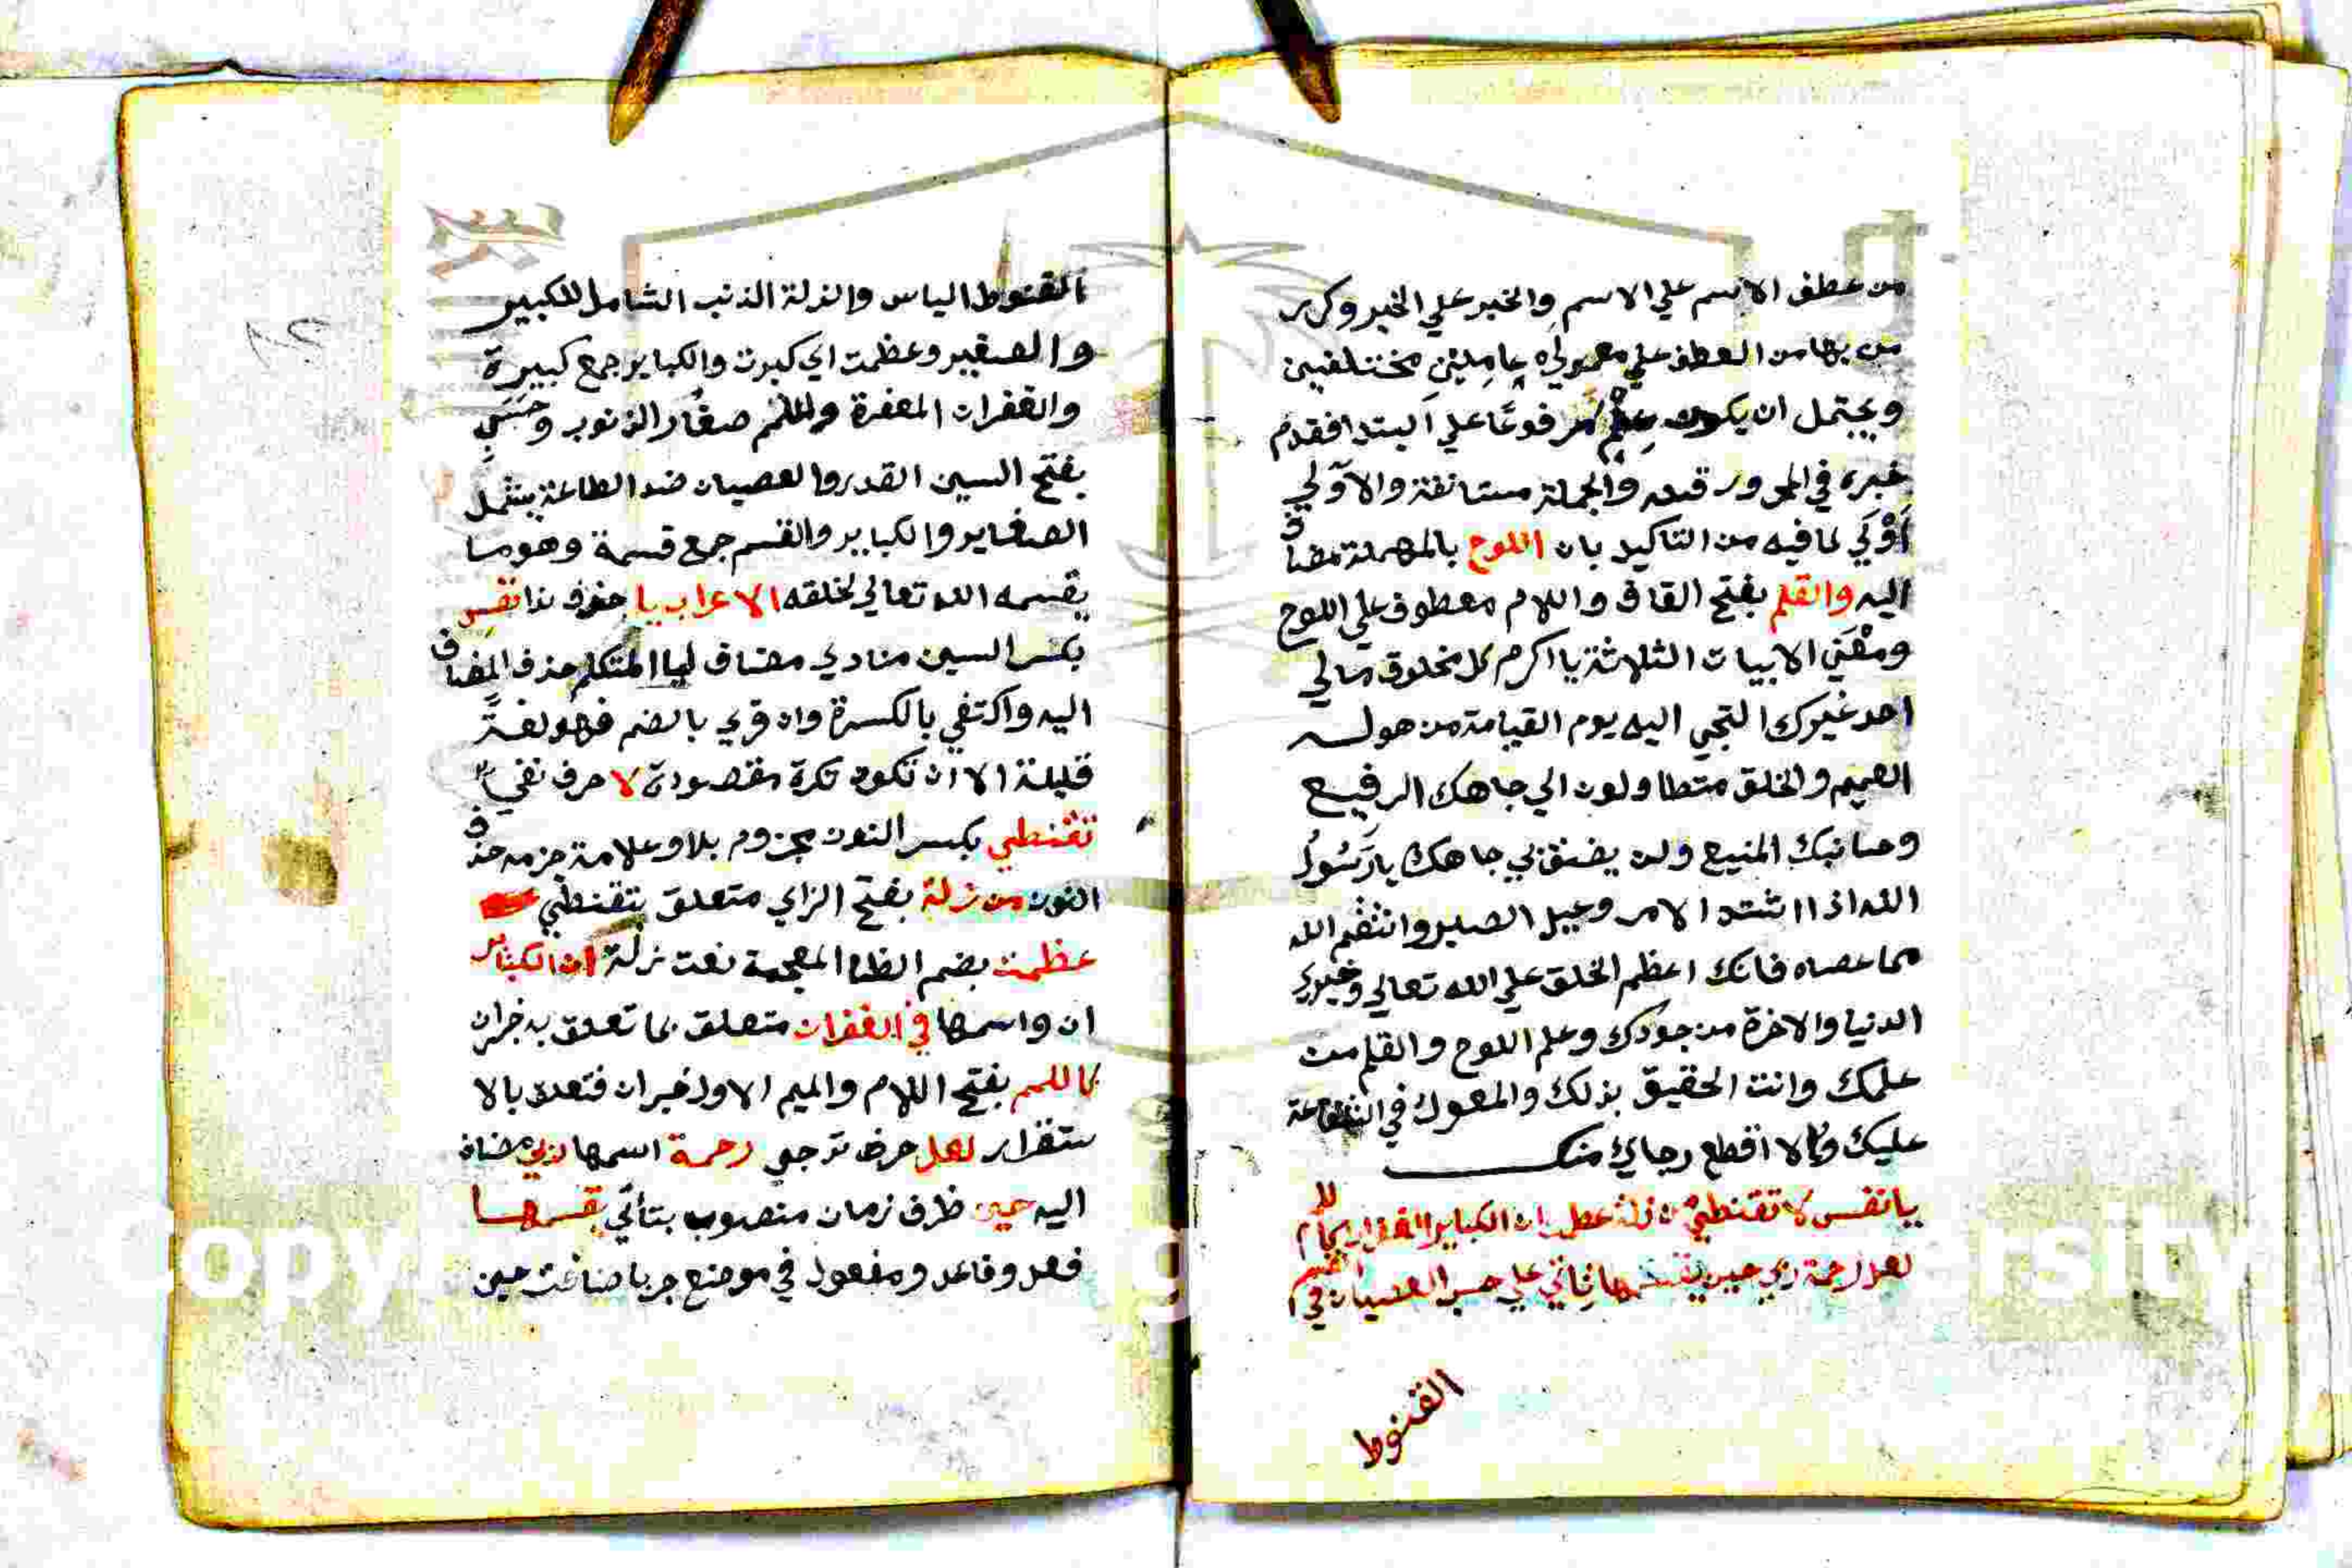 من عطف الاسم علي الاسم والخبر علي الخبر وكرر
من بها من العطف علي معمولي عاملين مختلفين
ويحتمل ان يكون علم مرفوعا علي المبتدا فقدم
خبره في المجرور قبله والجملة مستانفة والاولي
اولي لما فيه من التاكيد بان اللوح بالمهملة مضاف
اليه والقلم بفتح القاف واللام معطوف علي اللوح
ومعني الابيات الثلاثة يا اكرم كل مخلوق مالي
احد غيرك التجي اليه يوم القيامة من هوله
العميم والخلق متطاولون الي جاهك الرفيع
وجنابك المنيع ولن يضيق بي جاهك يا رسول
الله اذا اشتد الامر وعيل الصبر وانتقم الله
مما عصاه فانك اعظم الخلق علي الله تعالي وخيري
الدنيا والاخرة من جودك وعلم اللوح والقلم من
علمك وانت الحقيق بذلك والمعول في الشفاعة
عليك والا اقطع رجاي منك
يا نفس لا تقنطي من زلة عظمت ان الكباير في الغفران كاللمم
لعل رحمة ربي حين يقسمها تاتي علي حسب العصيان في القسم
القنوط
القنوط الياس والزلة الذنب الشامل للكبير
والصغير وعظمت اي كبرت والكباير جمع كبيرة
والغفران المغفرة واللمم صغار الذنوب وحسب
بفتح السين القدر والعصيان ضد الطاعة يشمل
الصغاير والكباير والقسم جمع قسمة وهو ما
يقسمه الله تعالي لخلقه الاعراب يا حرف ندا نفس
بكسر السين منادي مضاف ليا المتكلم حذف المضاف
اليه واكتفي بالكسرة وان قري بالضم فهو لغة
قليلة الا ان تكون نكرة مقصودة لا حرف نفي
تقنطي بكسر النون مجزوم بلا وعلامة جزمه حذف
النون من زلة بفتح الزاي متعلق بتقنطي
عظمت بضم الظا المعجمة نعت زلة ان الكباير
ان واسمها في الغفران متعلق بما تعلق به خبران
كاللمم بفتح اللام والميم الاول خبر ان فتعلق بالا
ستقرار لعل حرف ترجي رحمة اسمها ربي مضاف
اليه حين ظرف زمان منصوب بتاتي يقسمها
فعل وفاعل ومفعول في موضع جر باضافة حين